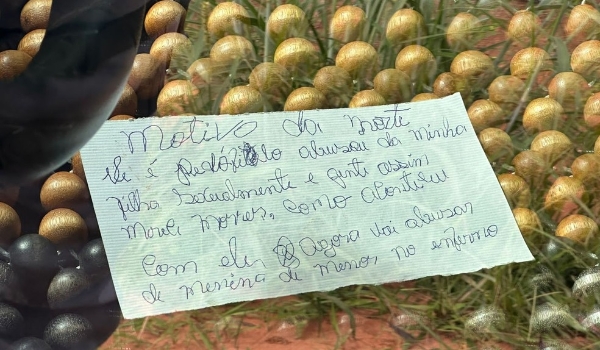 Motivo da morte
ele é pedófilo abusou da minha
filha sexualmente e gente assim
morre mories, como aconteceu
com ele, agora vai abusar
de menina de menor no inferno